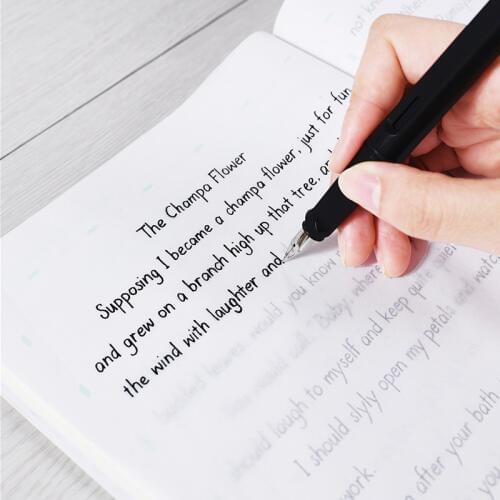 The Champa Flower
Supposing I became a champa flower, just for fun,
and grew on a branch high up that tree, and
the wind with laughter and
would you know
Baby, where
should laugh to myself and keep quite
I should slyly open my petals and
work.
after your bath